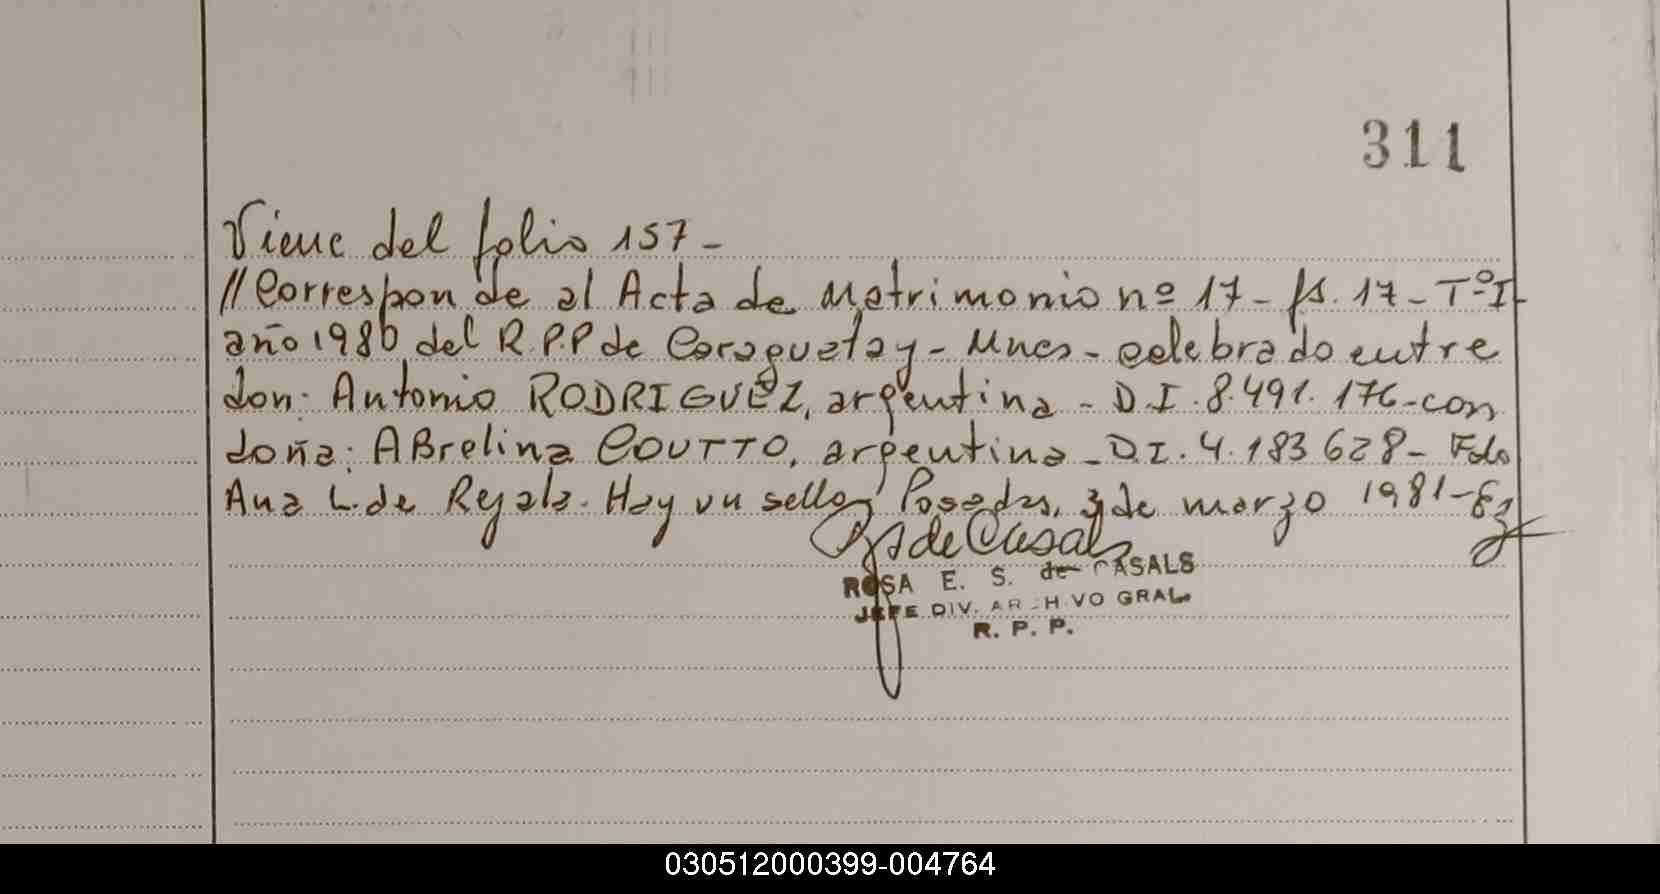 311
Viene del folio 157-
//Corresponde al Acta de Matrimonio nº 17- fs. 17- Tº-I-
año 1980, del R.P.P de Caraguatay- Mnes- celebrado entre
don: Antonio RODRIGUEZ, argentina - D.I. 8.491.176-con
doña: ABrelina COUTTO, argentina - D.I. 4.183628- Fdo
Ana L. de Rejala. Hay un sello, Posadas, 3 de marzo 1981-
RS de Casals
ROSA E. S. de CASALS
JEFE DIV. ARCHIVO GRAL.
R. P. P.
030512000399-004764